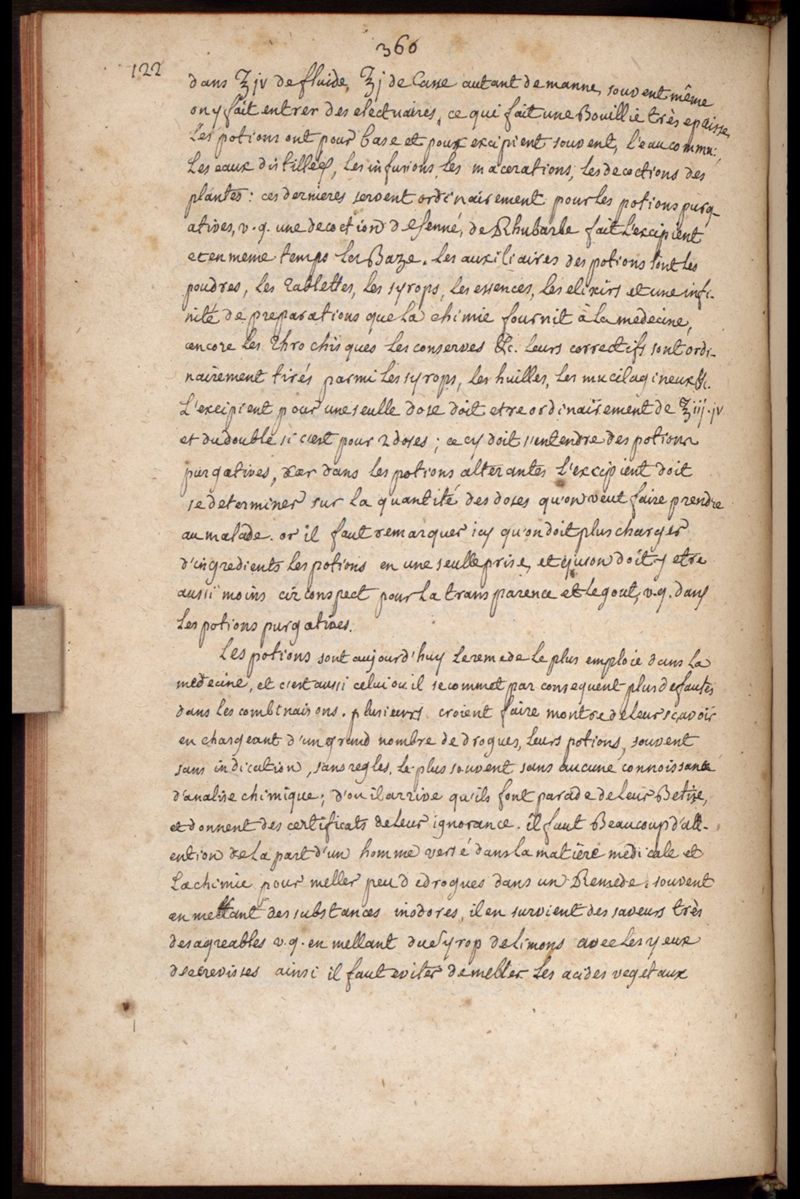 366
122
dans ℥jv de fluide, ℥j de Casse autant de manne, souvent même
on y fait entrer des electuaires, ce qui fait une Bouillie très epaisse
Les potions ont pour base et pour excipient souvent, l'eau commu:,
Les eaux distillées, Les infusions, Les macerations, Les decoctions des
plantes: ces dernieres servent ordinairement pour les potions purg-
atives, v.g. une decoction de senné, de Rhubarbe fait L'excipient
et en meme temps La Baze. Les auxiliaires des potions sont Les
poudres, Les Tablettes, Les syrops, Les essences, Les elixirs et une infi-
nité de preparations que La chimie fournit à La medecine,
encore Les Throchisques Les conserves &c. Leurs correctifs sont ordi-
nairement tirés parmi Les syrops, Les huilles, Les mucilagineux &c.
L'excipient pour une seulle dose doit etre ordinairement de ℥iij.jv
et du double si c'est pour 2 doses; ce cy doit s'entendre des potions
purgatives, car dans Les potions alterantes L'excipient doit
se determiner sur La quantité des doses qu'on veut faire prendre
au malade. or il faut remarquer icy qu'on doit plus charger
d'ingredients Les potions en une seulle prise, et qu'on doit y etre
aussi moins circonspect pour La transparence et Le gout, v.g. dans
Les potions purgatives.
Les potions sont aujourd'huy Le remede Le plus emploié dans La
medecine, et c'est aussi celui ou il se commet par consequent plus de fautes
dans Les combinaisons. plusieurs croient faire montre de Leur sçavoir
en chargeant d'un grand nombre de drogues, Leurs potions, souvent
sans indication, sans regles, Le plus souvent sans aucune connoissance
d'analise chimique; d'ou il arrive qu'ils font parade de Leur Betise,
et donnent des certificats de Leur ignorance. il faut Beaucoup d'att-
ention de La part d'un homme versé dans La matiere medicale et
La chimie pour meller peu de drogues dans un Remede. souvent
en mettant des substances inodores, il en survient des saveurs très
desagreables v.g. en mellant du Syrop de Limons avec Les yeux
d'ecrevisses ainsi il faut eviter de meller Les acides vegetaux